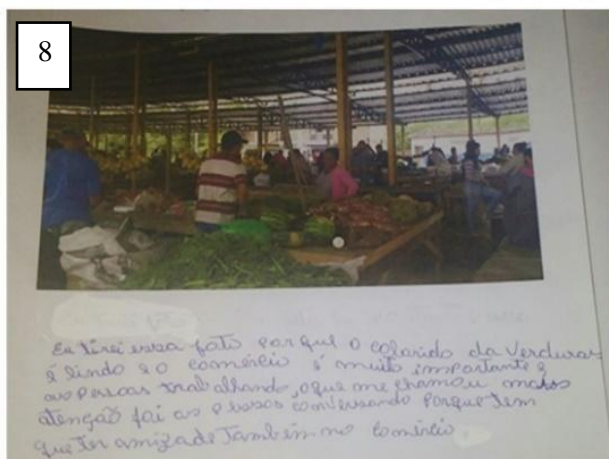 8
Eu tirei essa foto porque o colorido da verduras
é lindo e o comércio é muito importante e
as pessoas trabalhando, o que me chamou mais
atenção foi as pesoas conversando porque tem
que ter amizade também no comércio.